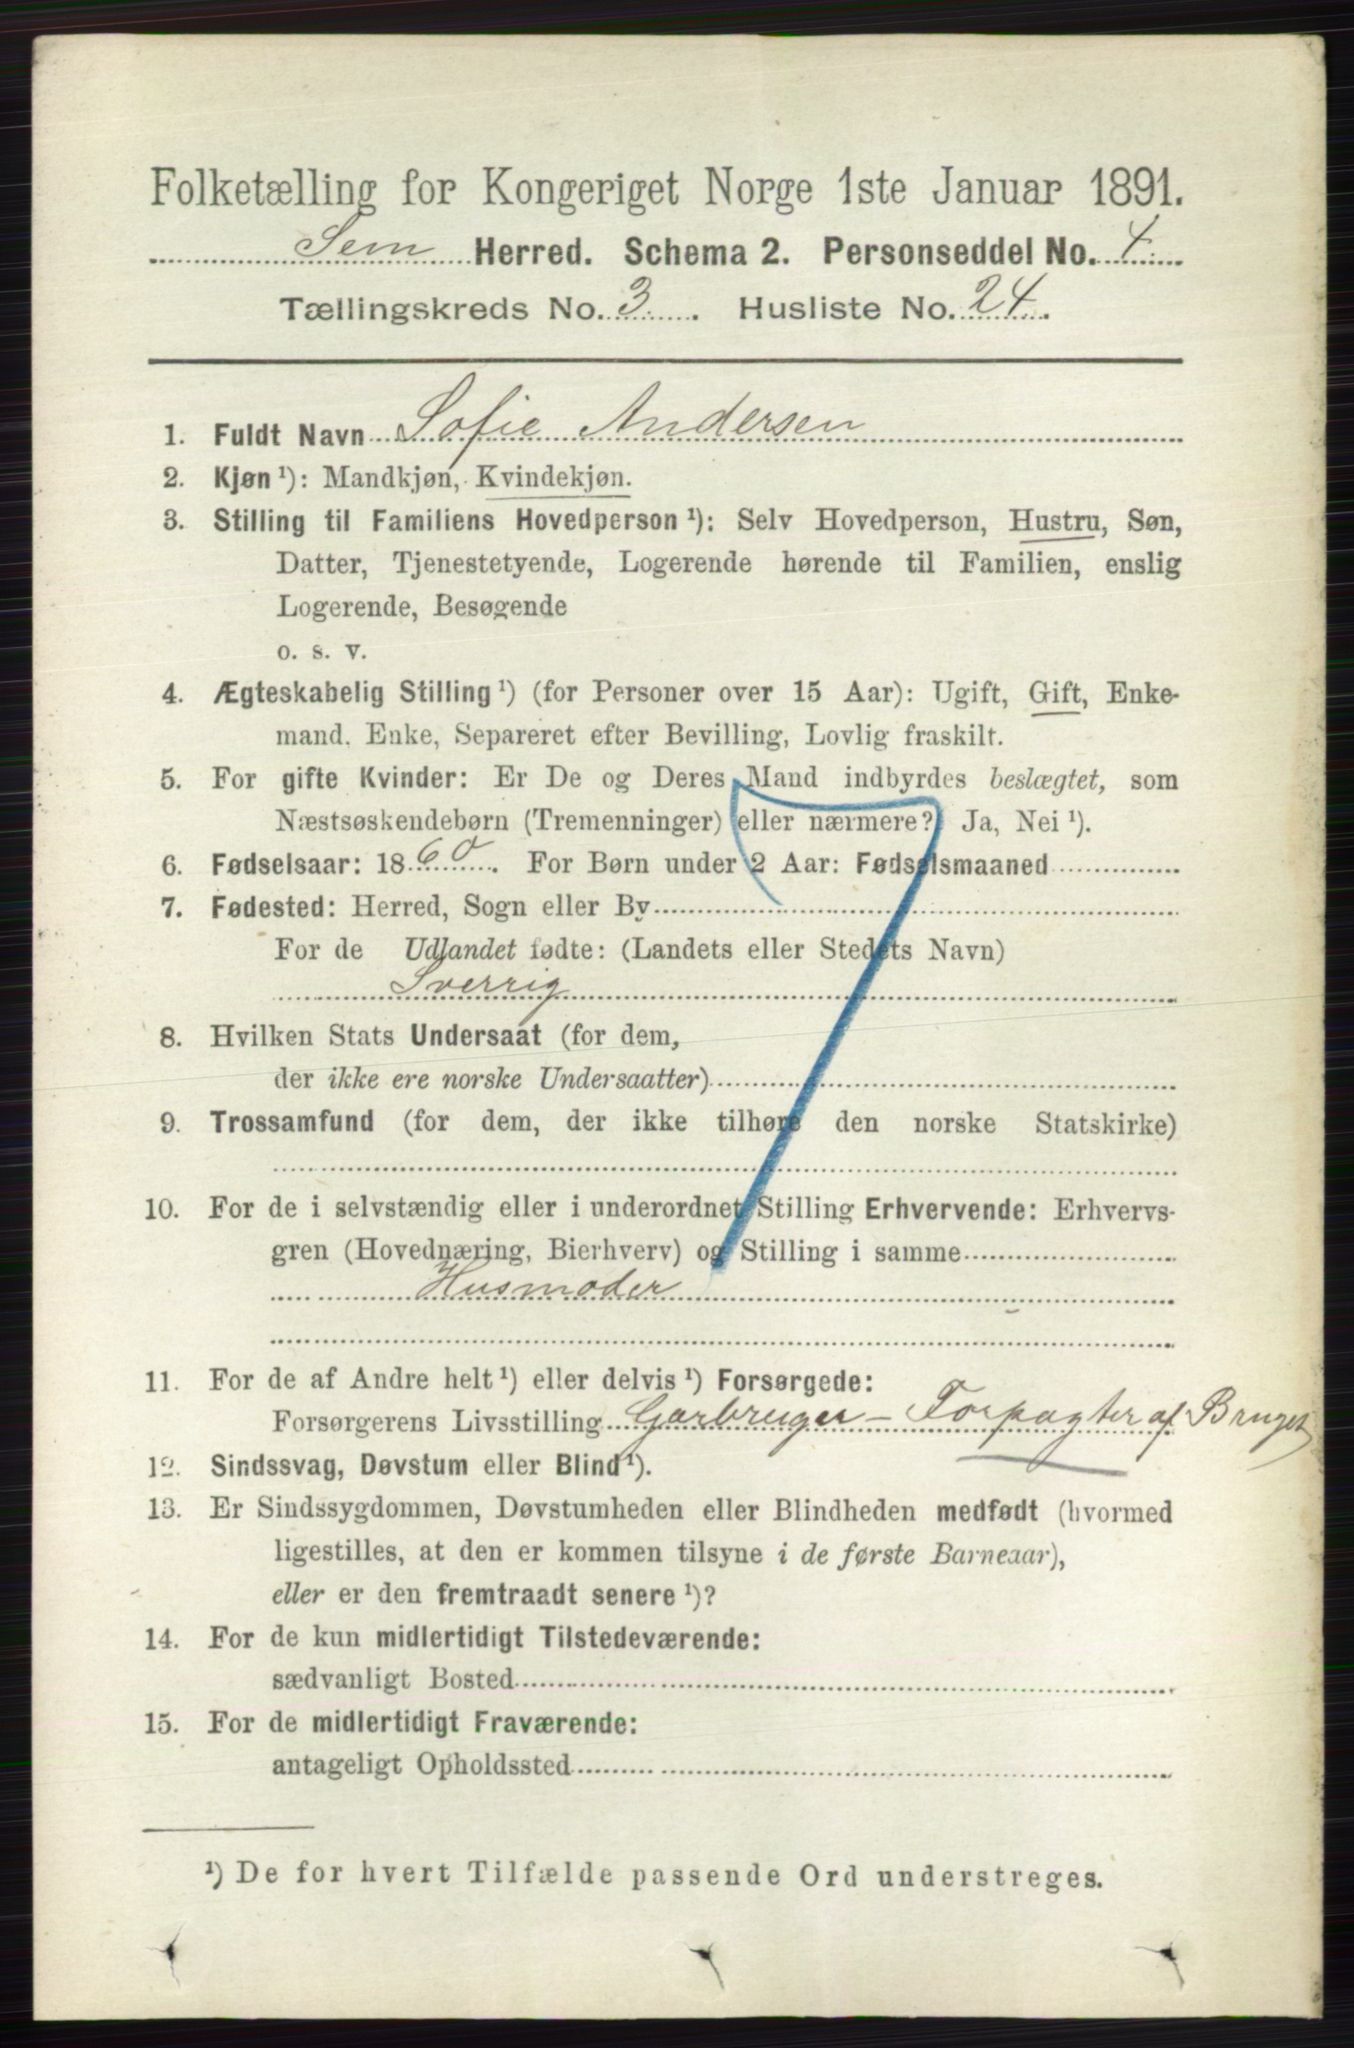 Folketælling for Kongeriget Norge 1ste Januar 1891.
Sem Herred. Schema 2. Personseddel No. 4.
Tællingskreds No. 3. Husliste No. 24.
1. Fuldt Navn Sofie Andersen
2. Kjøn ¹): Mandkjøn, Kvindekjøn.
3. Stilling til Familiens Hovedperson ¹): Selv Hovedperson, Hustru, Søn,
Datter, Tjenestetyende, Logerende hørende til Familien, enslig
Logerende, Besøgende
o. s. v.
4. Ægteskabelig Stilling ¹) (for Personer over 15 Aar): Ugift, Gift, Enke-
mand, Enke, Separeret efter Bevilling, Lovlig fraskilt.
5. For gifte Kvinder: Er De og Deres Mand indbyrdes beslægtet, som
Næstsøskendebørn (Tremenninger) eller nærmere? Ja, Nei ¹).
6. Fødselsaar: 1860. For Børn under 2 Aar: Fødselsmaaned
7. Fødested: Herred, Sogn eller By
For de Udlandet fødte: (Landets eller Stedets Navn)
Sverrig
8. Hvilken Stats Undersaat (for dem,
der ikke ere norske Undersaatter)
9. Trossamfund (for dem, der ikke tilhøre den norske Statskirke)
10. For de i selvstændig eller i underordnet Stilling Erhvervende: Erhvervs-
gren (Hovednæring, Bierhverv) og Stilling i samme
Husmoder
11. For de af Andre helt ¹) eller delvis ¹) Forsørgede:
Forsørgerens Livsstilling Garbruger – Forpagter af Bruget
12. Sindssvag, Døvstum eller Blind ¹).
13. Er Sindssygdommen, Døvstumheden eller Blindheden medfødt (hvormed
ligestilles, at den er kommen tilsyne i de første Barneaar),
eller er den fremtraadt senere ¹)?
14. For de kun midlertidigt Tilstedeværende:
sædvanligt Bosted
15. For de midlertidigt Fraværende:
antageligt Opholdssted
¹) De for hvert Tilfælde passende Ord understreges.